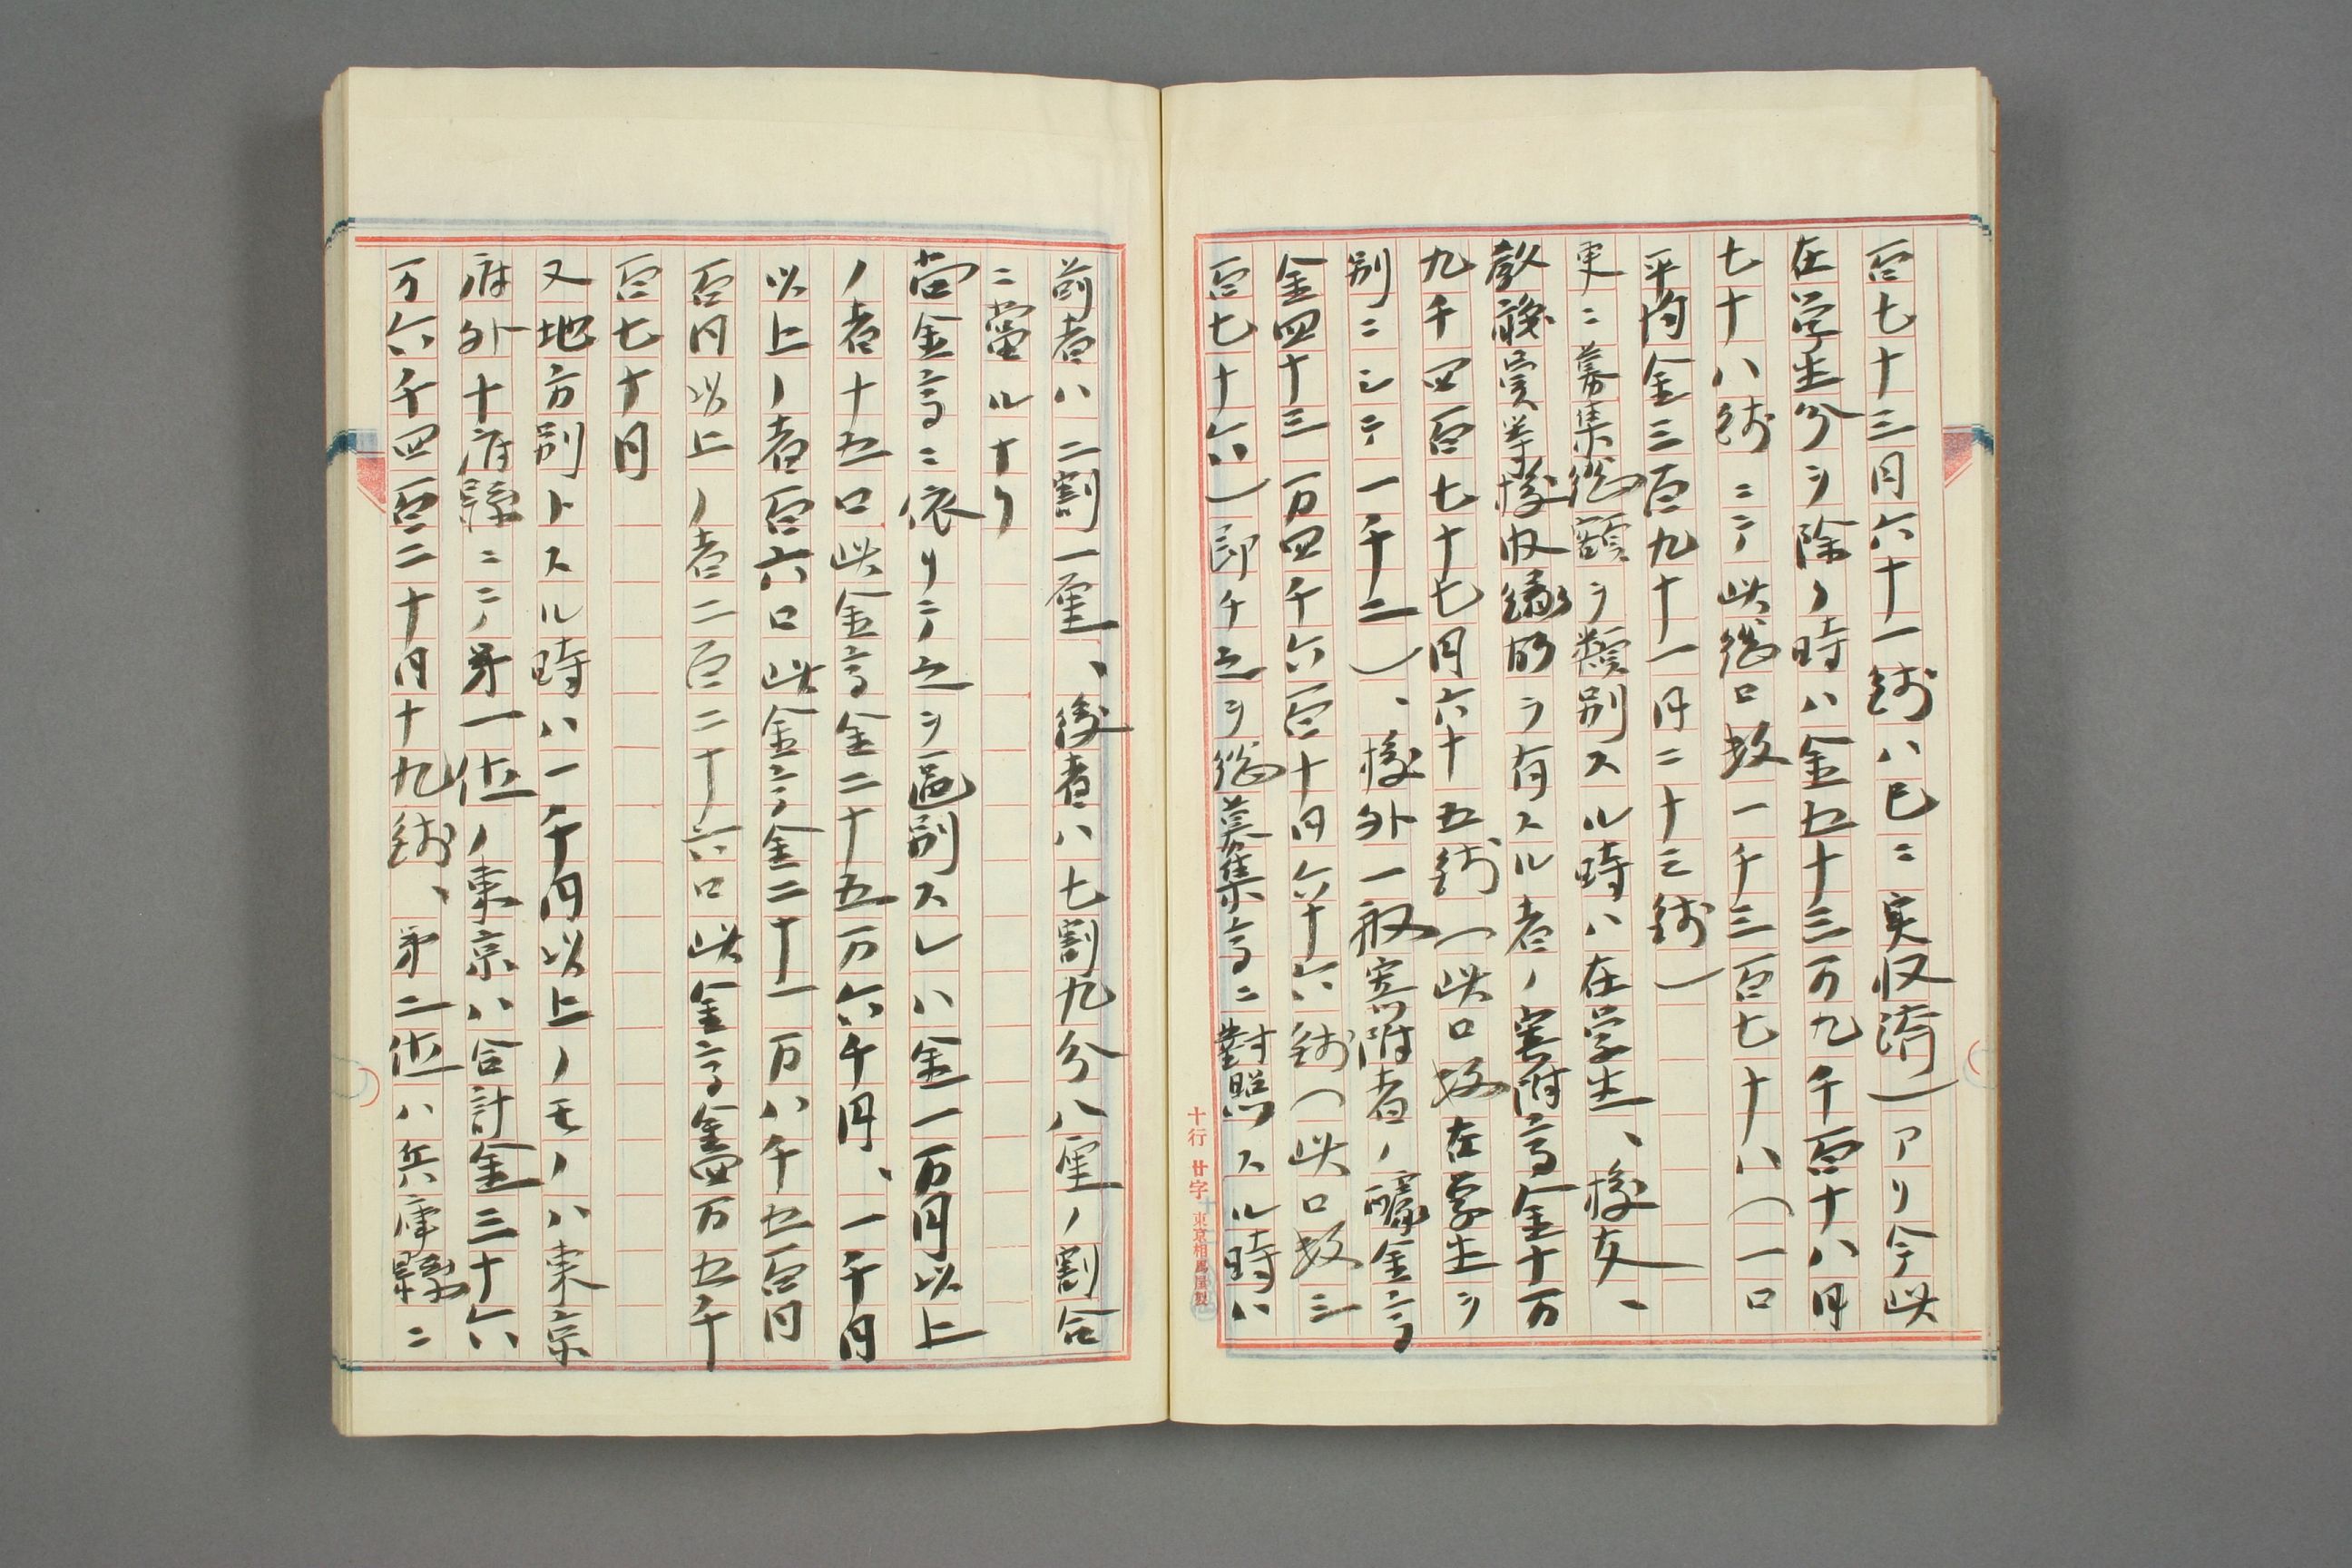 百七十三円六十一銭ハ已ニ実収済）アリ今此
在学生分ヲ除ノ時ハ金五十三万九千百十八円
七十八銭ニテ此総口数一千三百七十八（一口
平均金三百九十一円二十三銭）
更ニ募集総額ヲ類別スル時ハ在学生、校友、
教職員等校収縁故ヲ有スル者ノ寄附高金十万
九千四百七十七円六十五銭（此口数在学生ヲ
別ニシテ一千二）、校外一般寄附者ノ醵金高
金四十三万四千六百十円六十六銭（此口数三
百七十六）即チ之ヲ総募集高ニ對照スル時ハ
十行 廿字 東京相馬屋製
前者ハ二割一厘、後者ハ七割九分八厘ノ割合
ニ當ルナリ
尚金高ニ依リテ之ヲ區別スレハ金一万円以上
ノ者十五口此金高金二十五万六千円、一千円
以上ノ者百六口此金高金二十一万八千五百円
百円以上ノ者二百二十六口此金高金四万五千
百七十円
又地方別トスル時ハ一千円以上ノモノハ東京
府外十府縣ニテ第一位ノ東京ハ合計金三十六
万六千四百二十円十九銭、第二位ハ兵庫縣ニ